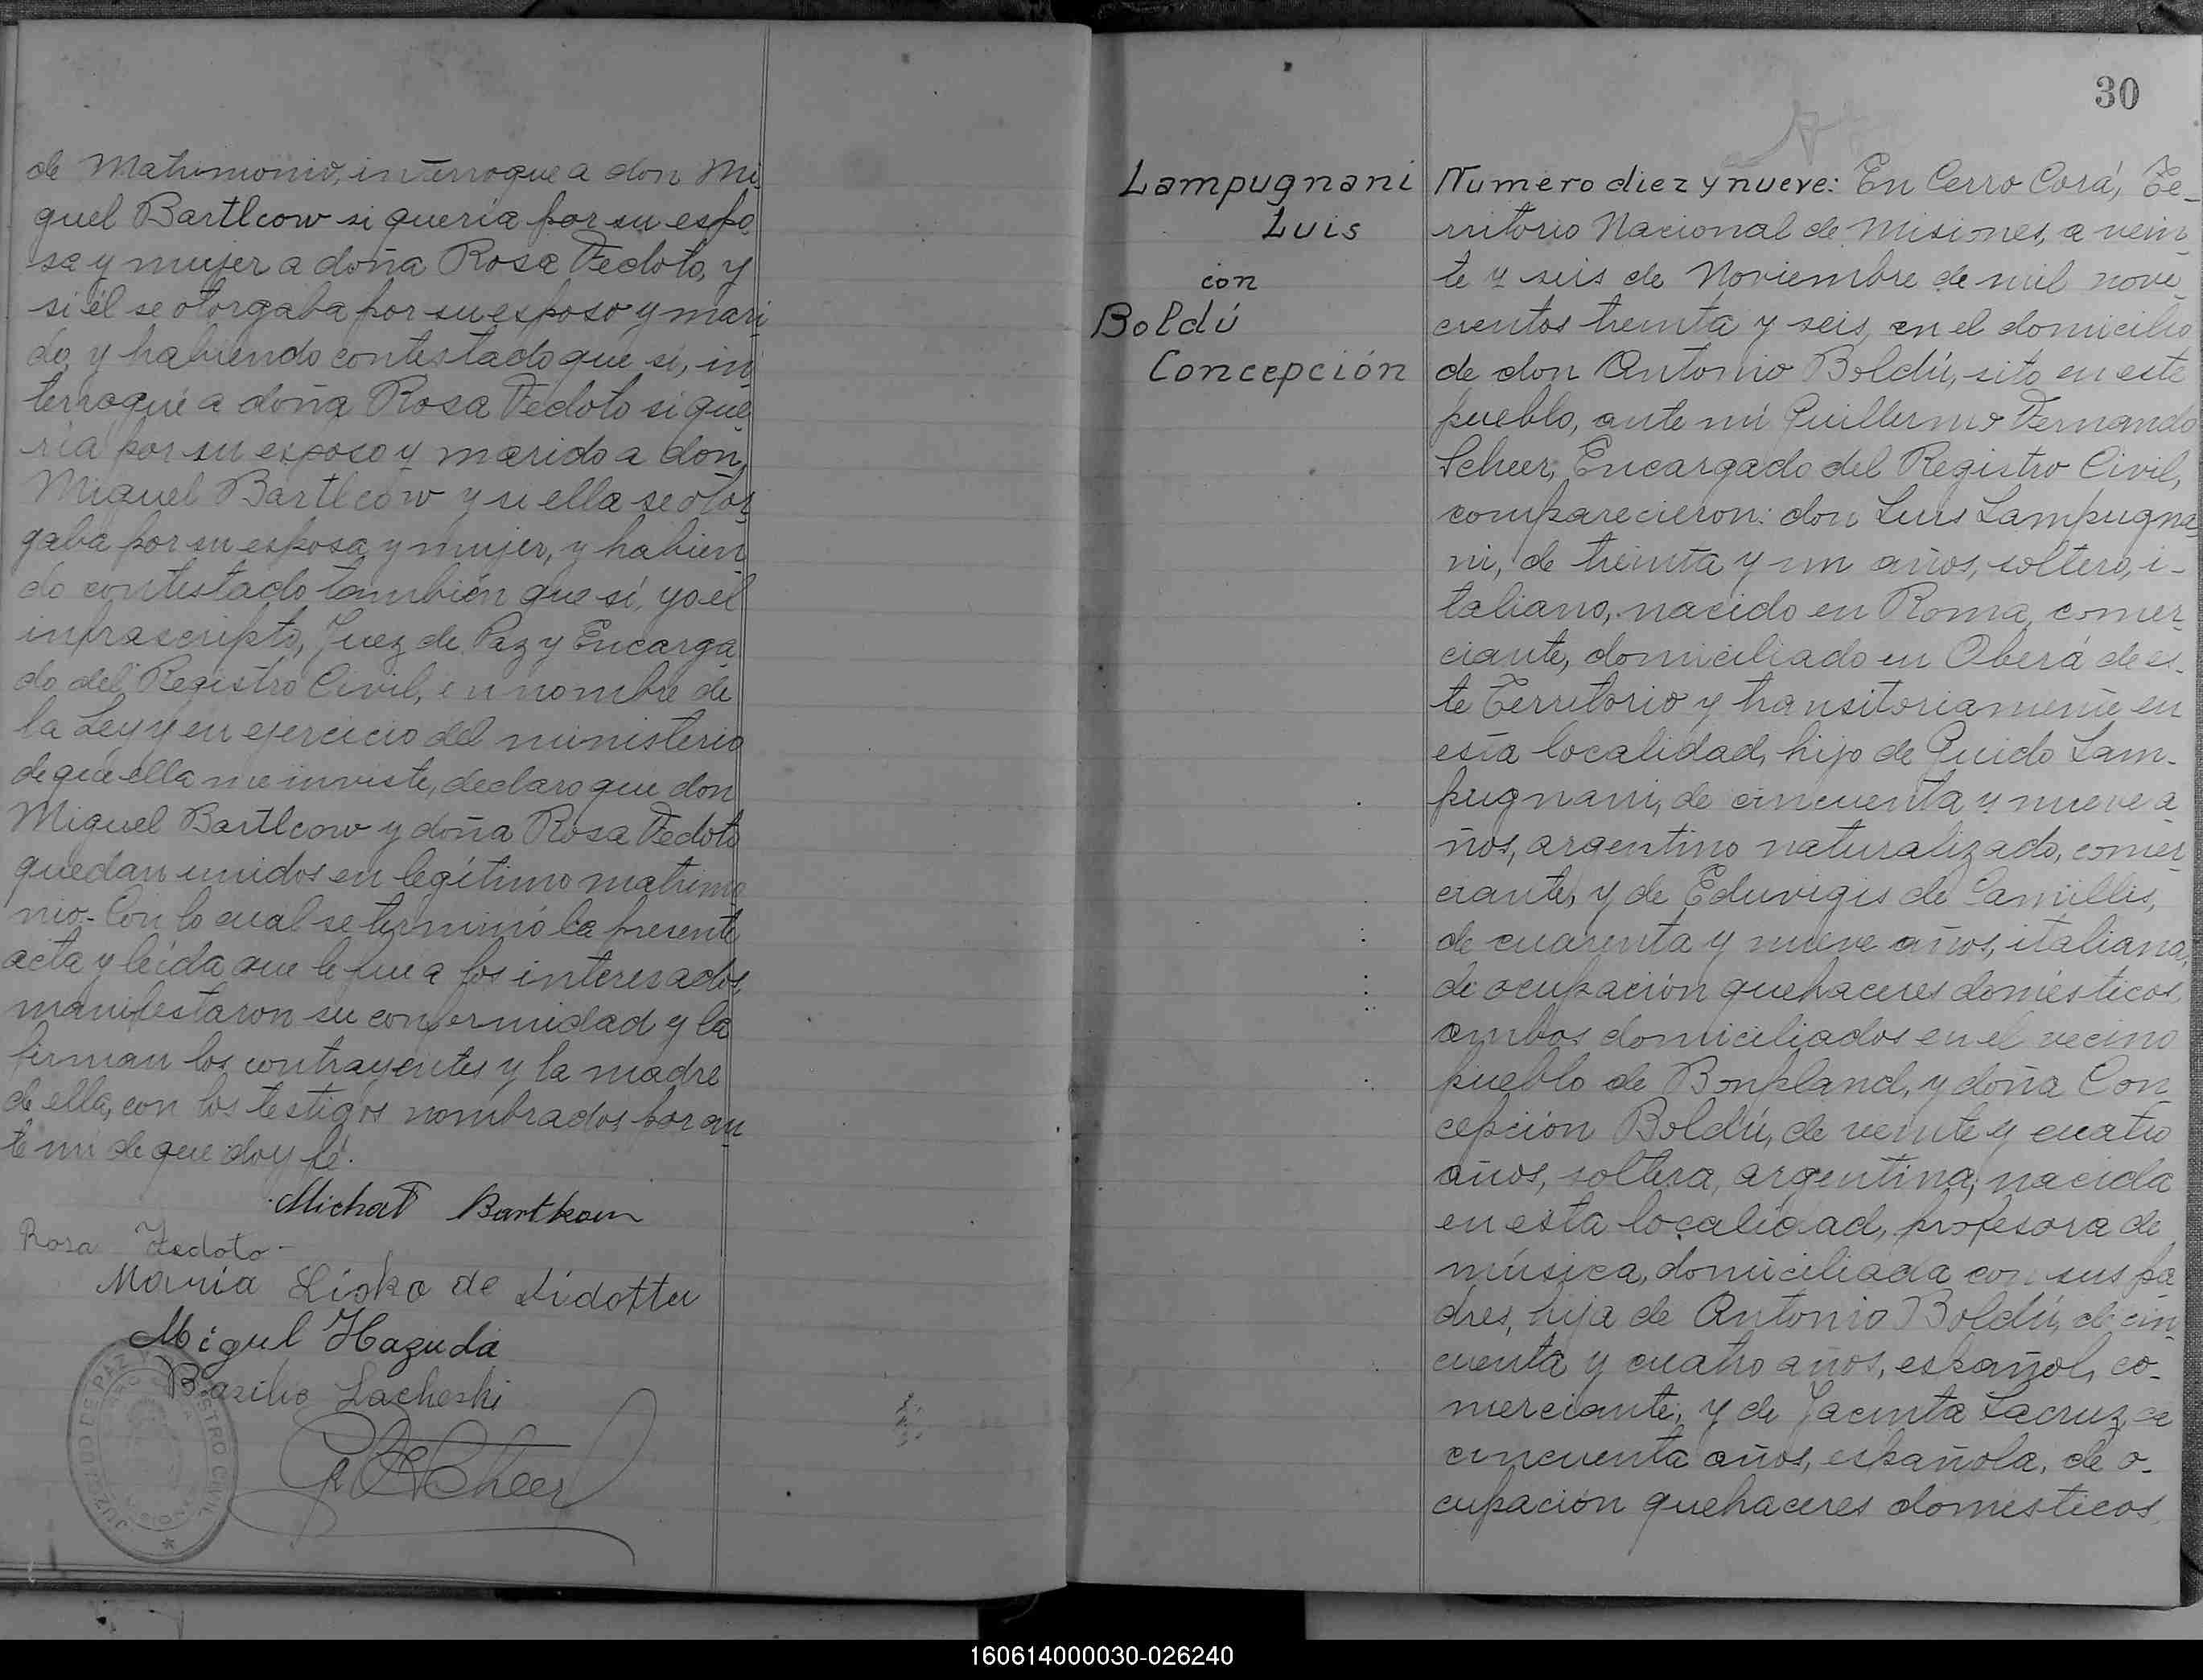 de Matrimonio, interroque a don Mi
guel Bartlcow si quería por su espo
sa y mujer a doña Rosa Fedoto, y
si él se otorgaba por su esposo y mari
do, y habiendo contestado que sí, in
terroqué a doña Rosa Fedoto si que
ría por su esposo y marido a don
Miguel Bartlcow y si ella se otor
gaba por su esposa y mujer, y habien
do contestado también que sí, yo el
infrascripto, Juez de Paz y Encarga
do del Registro Civil, en nombre de
la Ley y en ejercicio del ministerio
de que ella me inviste, declaro que don
Miguel Bartlcow y doña Rosa Fedoto
quedan unidos en legítimo matrimo
nio.- Con lo cual se terminó la presente
acta y leída que le fue a los interesados,
manifestaron su conformidad y la
firman los contrayentes y la madre
de ella, con los testigos nombrados por an
te mi de que doy fé.
Michał Bartkow
Rosa Fedoto
Maria Lisko de Fidottu
Migul Hazuda
Basilio Lacheski
G F Scheer
JUZGADO DE PAZ Y REGISTRO CIVIL
30
Lampugnani
Luis
con
Boldú
Concepción
Numero diez y nueve: En Cerro Corá, Te-
rritorio Nacional de Misiones, a vein
te y seis de Noviembre de mil nove
cientos treinta y seis, en el domicilio
de don Antonio Boldú, sito en este
pueblo, ante mí Guillermo Fernando
Scheer, Encargado del Registro Civil,
comparecieron: don Luis Lampugna
ni, de treinta y un años, soltero, i-
taliano, nacido en Roma, comer
ciante, domiciliado en Oberá de es-
te Territorio y transitoriamente en
esta localidad, hijo de Guido Lam-
pugnani, de cincuenta y nueve a
ños, argentino naturalizado, comer
ciante, y de Eduvigis de Camillis,
de cuarenta y nueve años, italiana,
de ocupación quehaceres domésticos,
ambos domiciliados en el vecino
pueblo de Bonpland, y doña Con
cepción Boldú, de veinte y cuatro
años, soltera, argentina, nacida
en esta localidad, profesora de
música, domiciliada con sus pa
dres, hija de Antonio Boldú, de cin
cuenta y cuatro años, español, co-
merciante, y de Jacinta Lacruz, de
cincuenta años, española, de o-
cupación quehaceres domésticos,
160614000030-026240